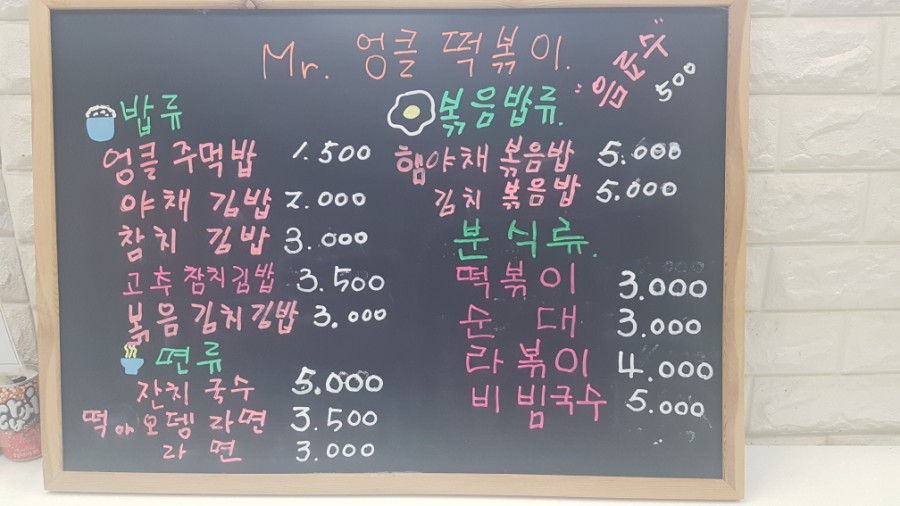 Mr. 엉클 떡볶이.
음료수 500
밥류
엉클 주먹밥 1.500
야채 김밥 2.000
참치 김밥 3.000
고추참치김밥 3.500
볶음김치김밥 3.000
면류
잔치 국수 5.000
떡 오뎅 라면 3.500
라 면 3.000
볶음밥류.
햄야채 볶음밥 5.000
김치 볶음밥 5.000
분식류.
떡볶이 3.000
순 대 3.000
라볶이 4.000
비빔국수 5.000